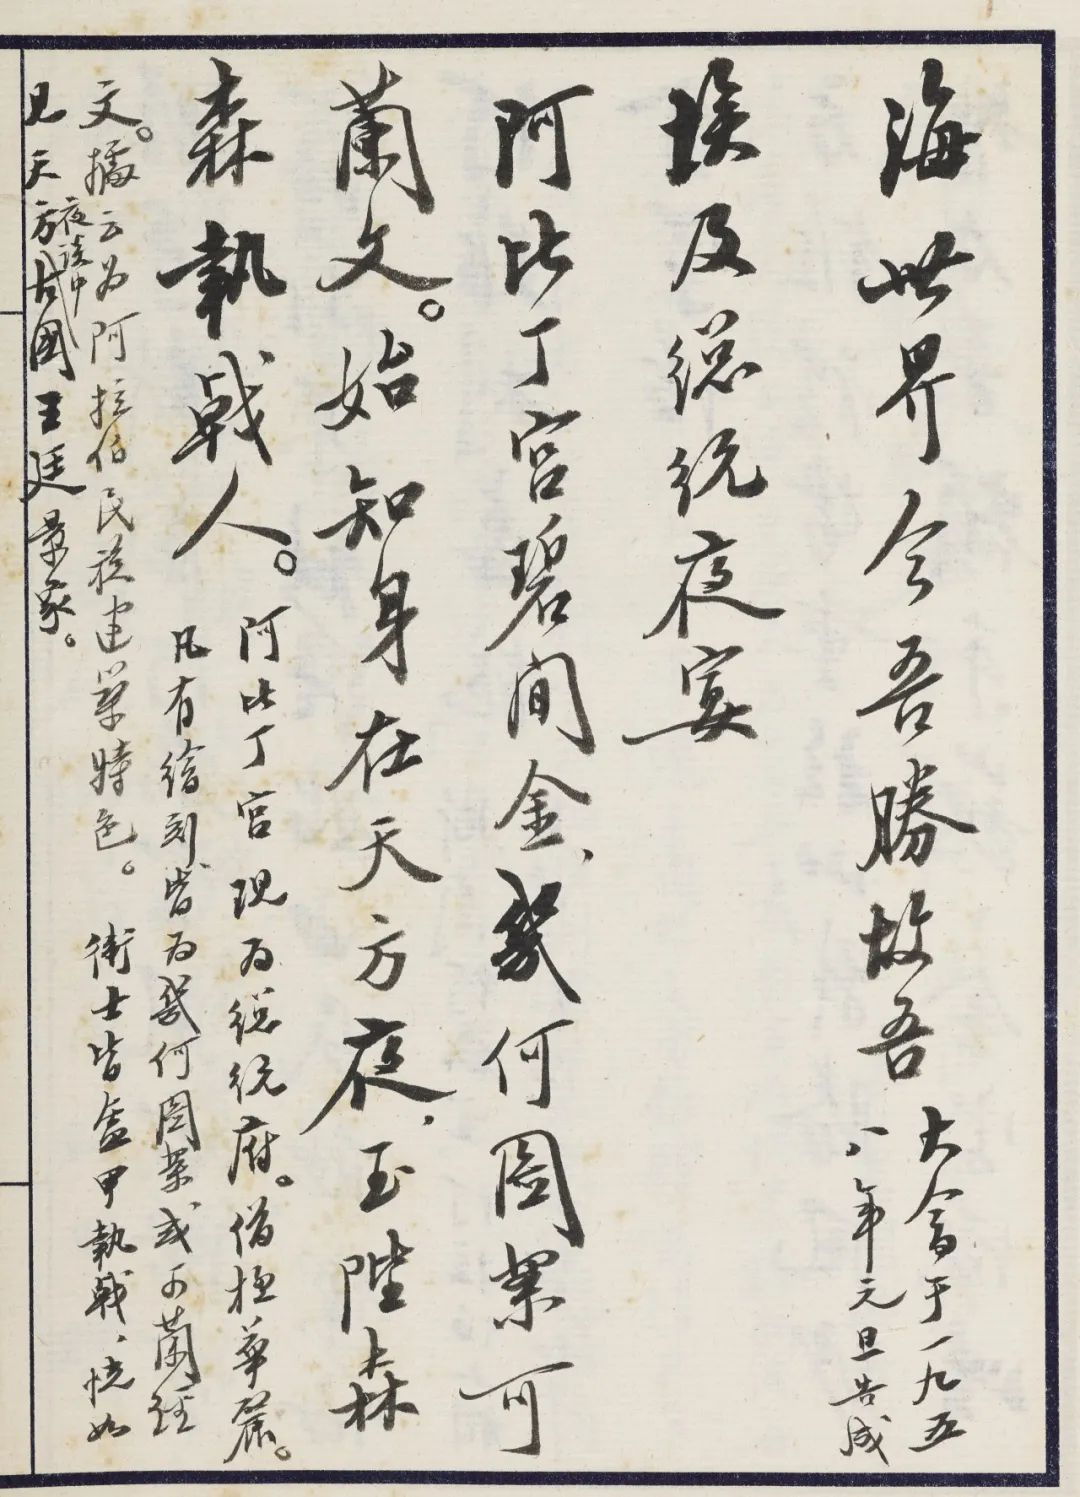 海世界今吾勝故吾 大會于一九五
八年元旦告成
埃及總統夜宴
阿比丁宮碧間金、幾何圖案可
蘭文。始知身在天方夜、玉陛森
森執戟人。 阿比丁宮現為總統府。備極華麗。
凡有繪刻皆為幾何圖案或可蘭經
文。據云為阿拉伯民族建築特色。 衛士皆盔甲執戟、恍如
見天方夜譚中古國王廷景象。